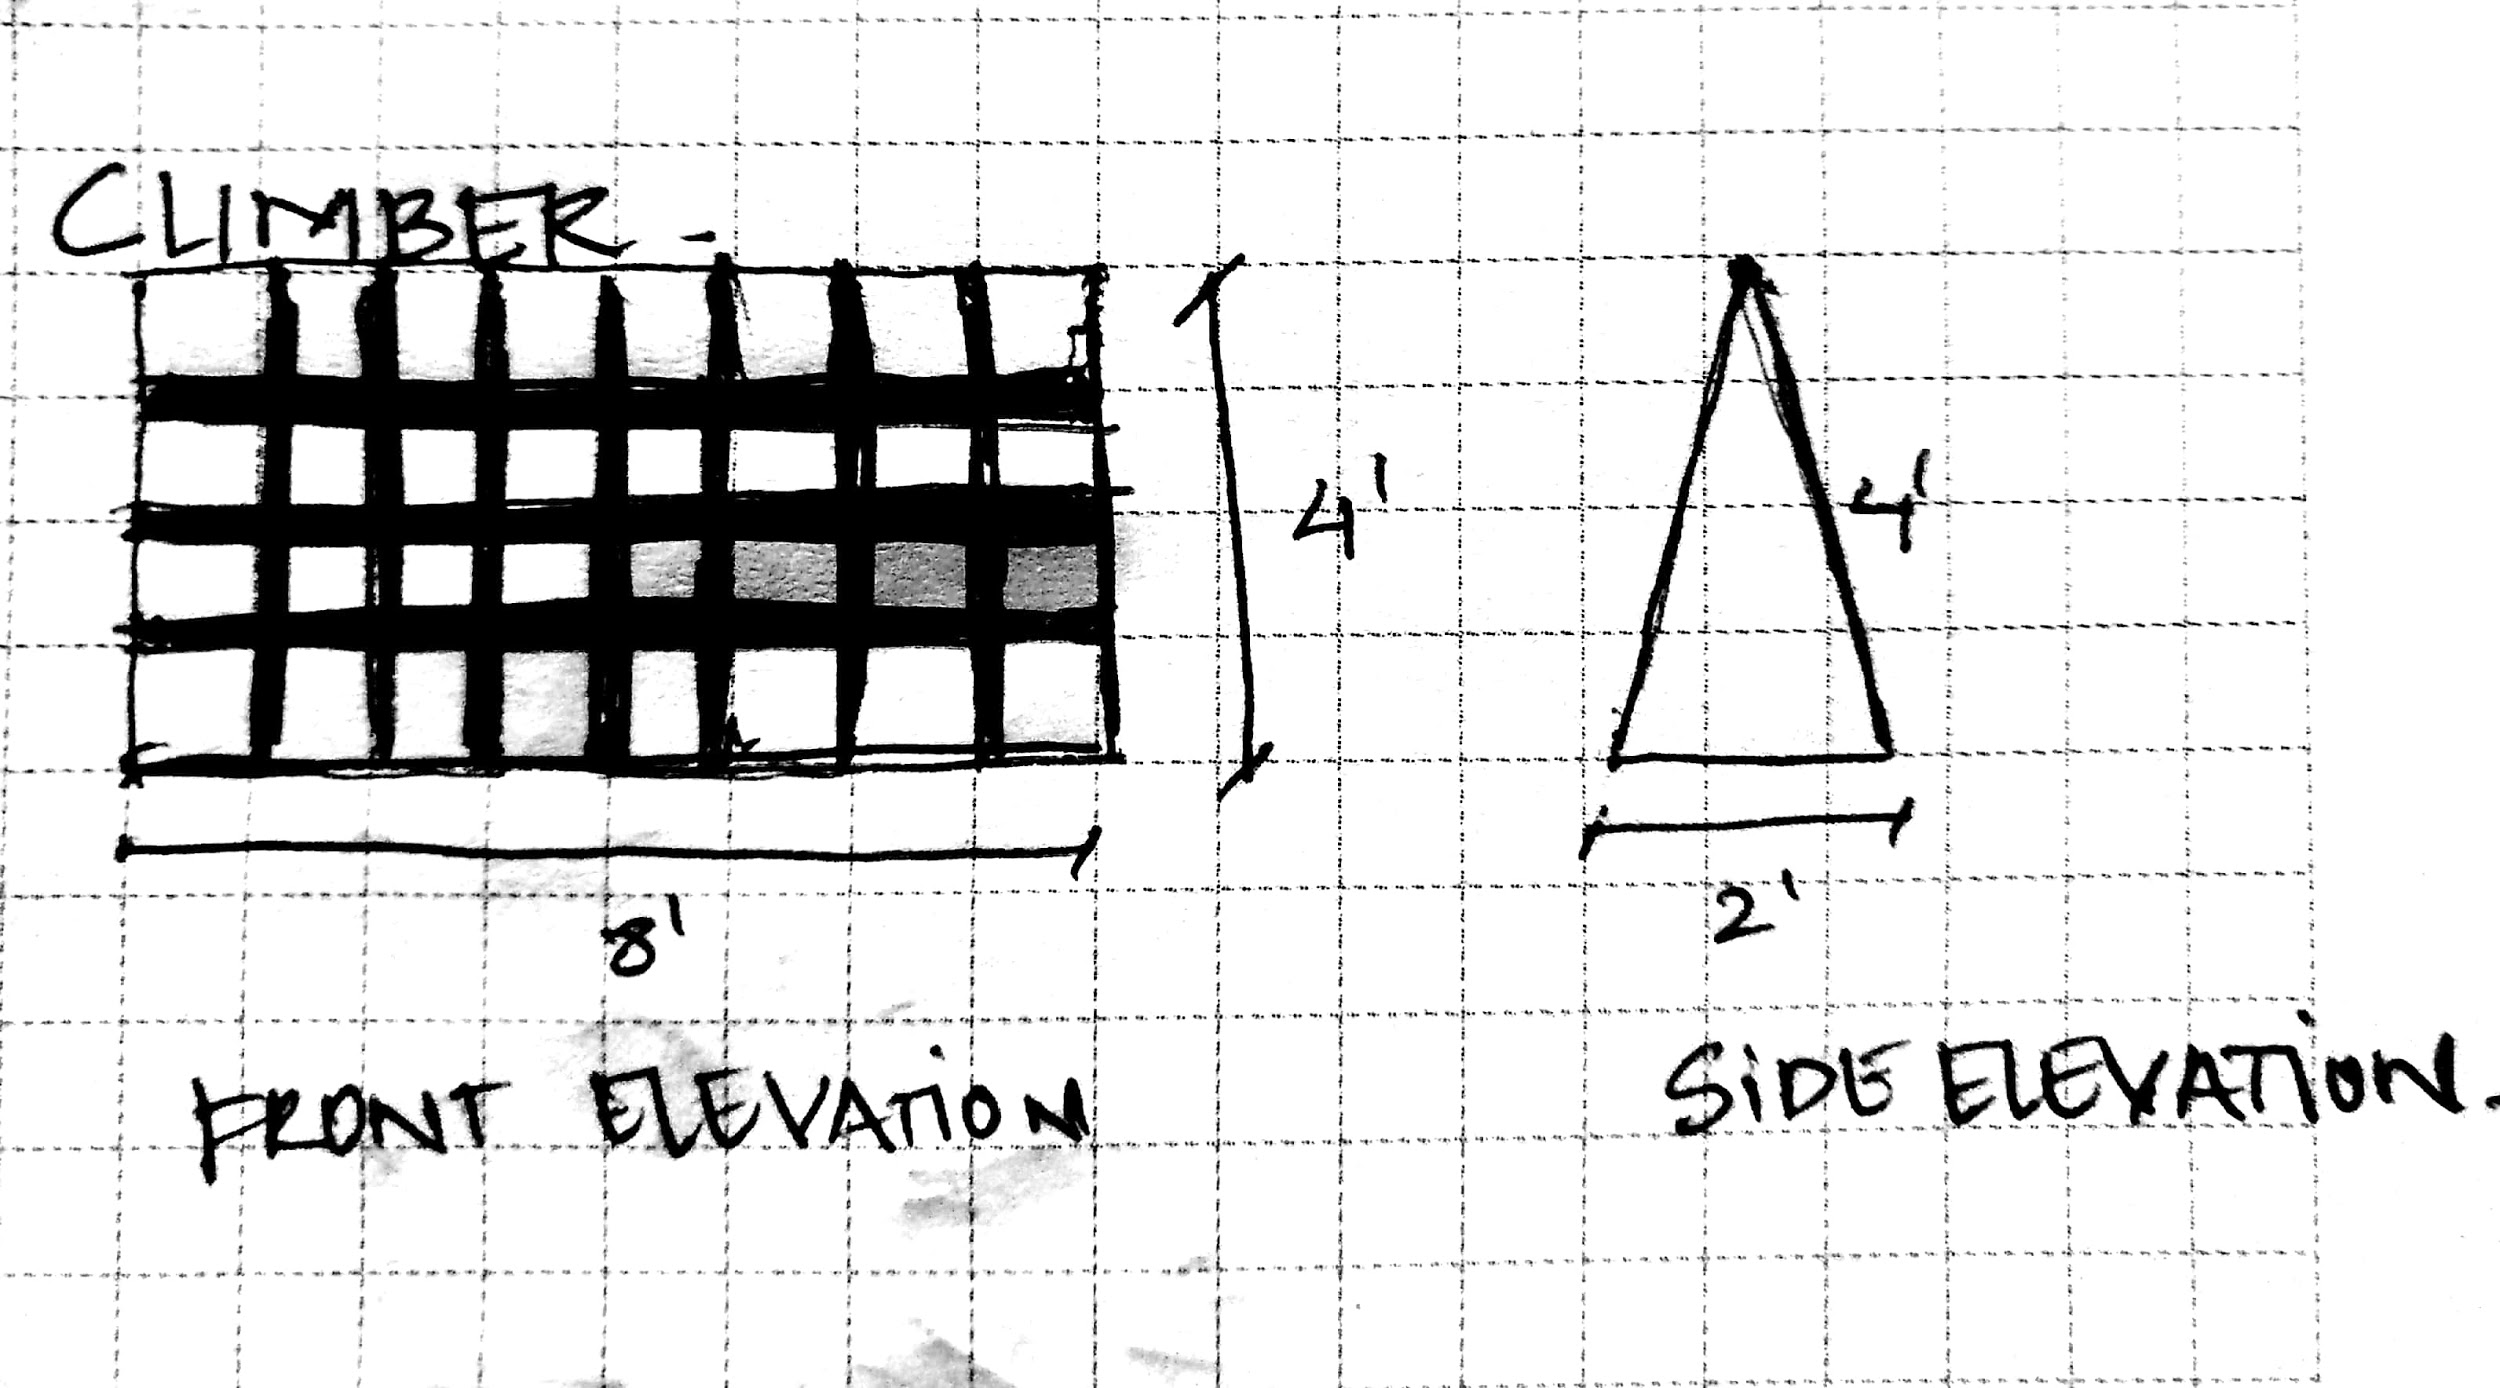 CLIMBER -
4'
4'
8'
2'
FRONT ELEVATION
SIDE ELEVATION.